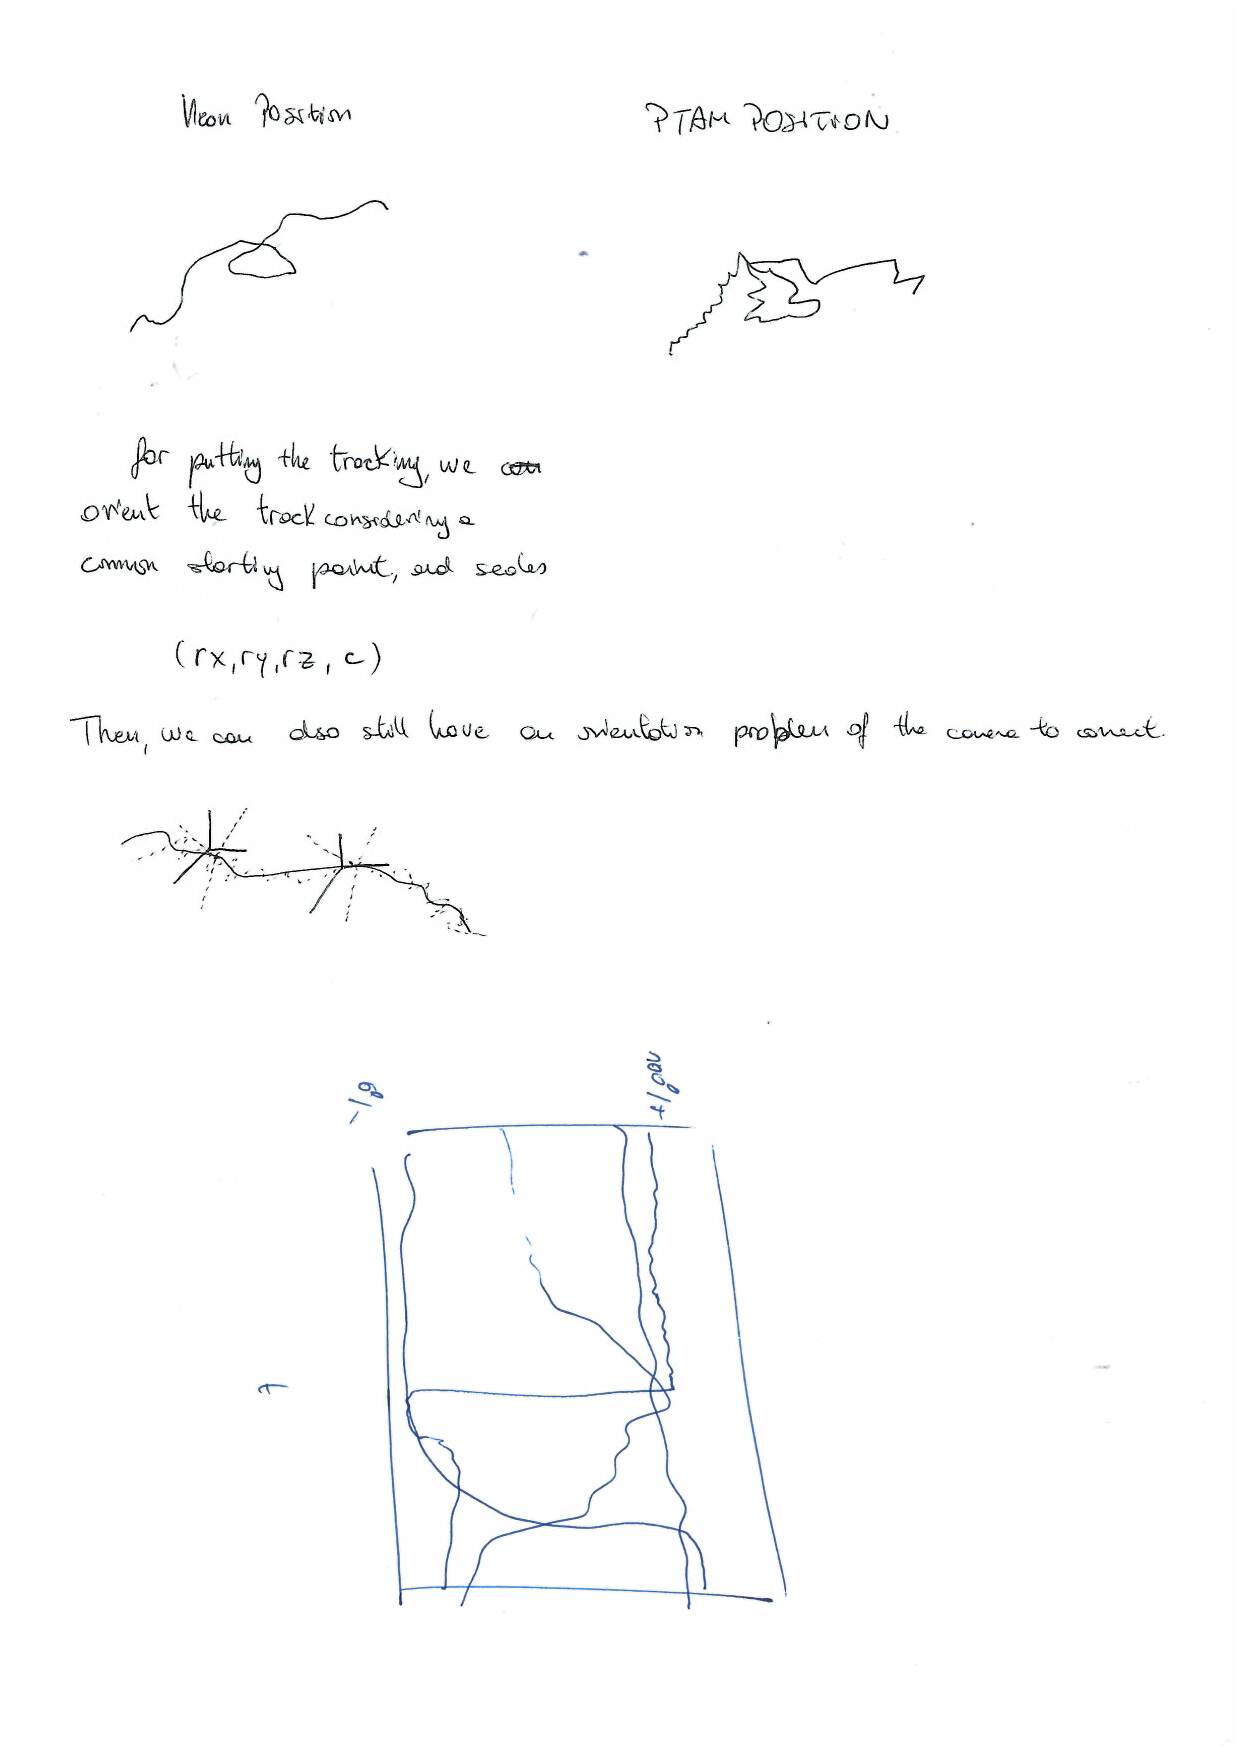 Neon Position
PTAM POSITION
for putting the tracking, we
orient the track considering a
common starting point, and scales
(rx, ry, rz, c)
Then, we can also still have an orientation problem of the camera to correct.